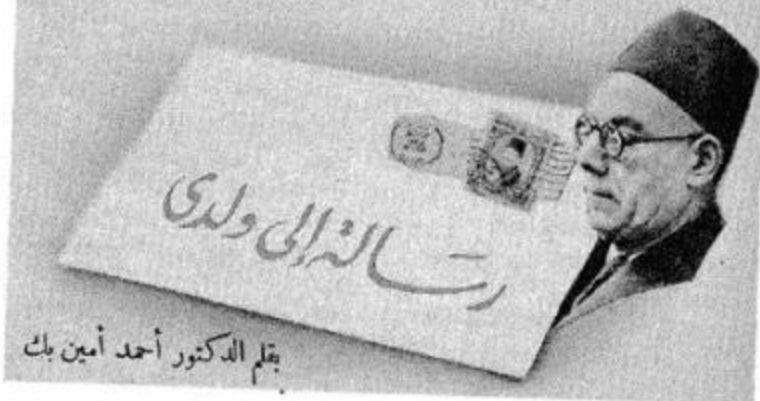 رسالة إلى ولدى
بقلم الدكتور أحمد أمين بك